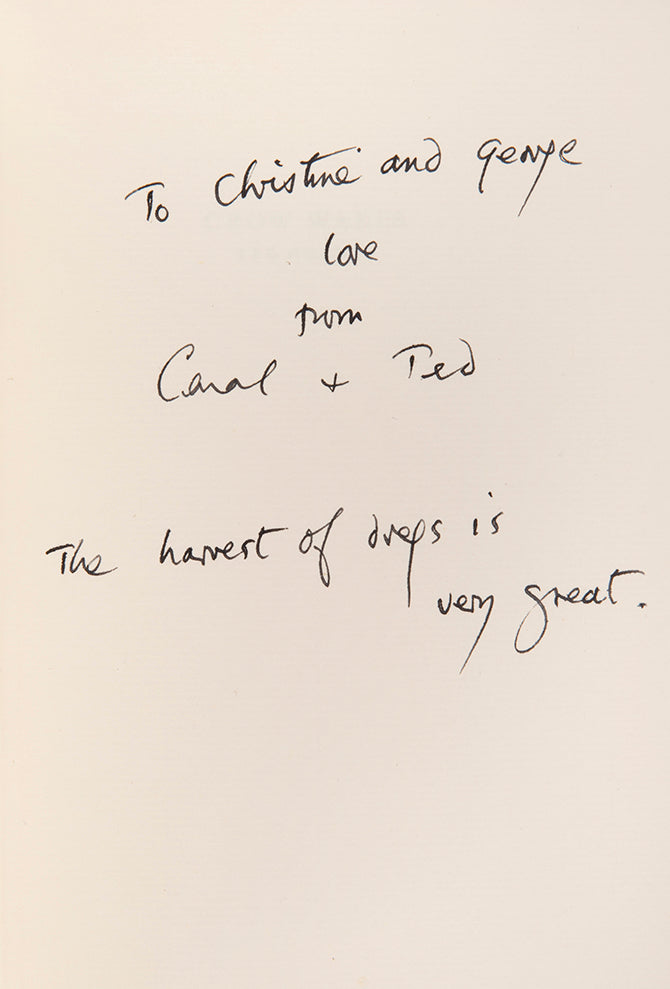 To Christine and George
love
from
Carol + Ted
The harvest of dregs is
very great.